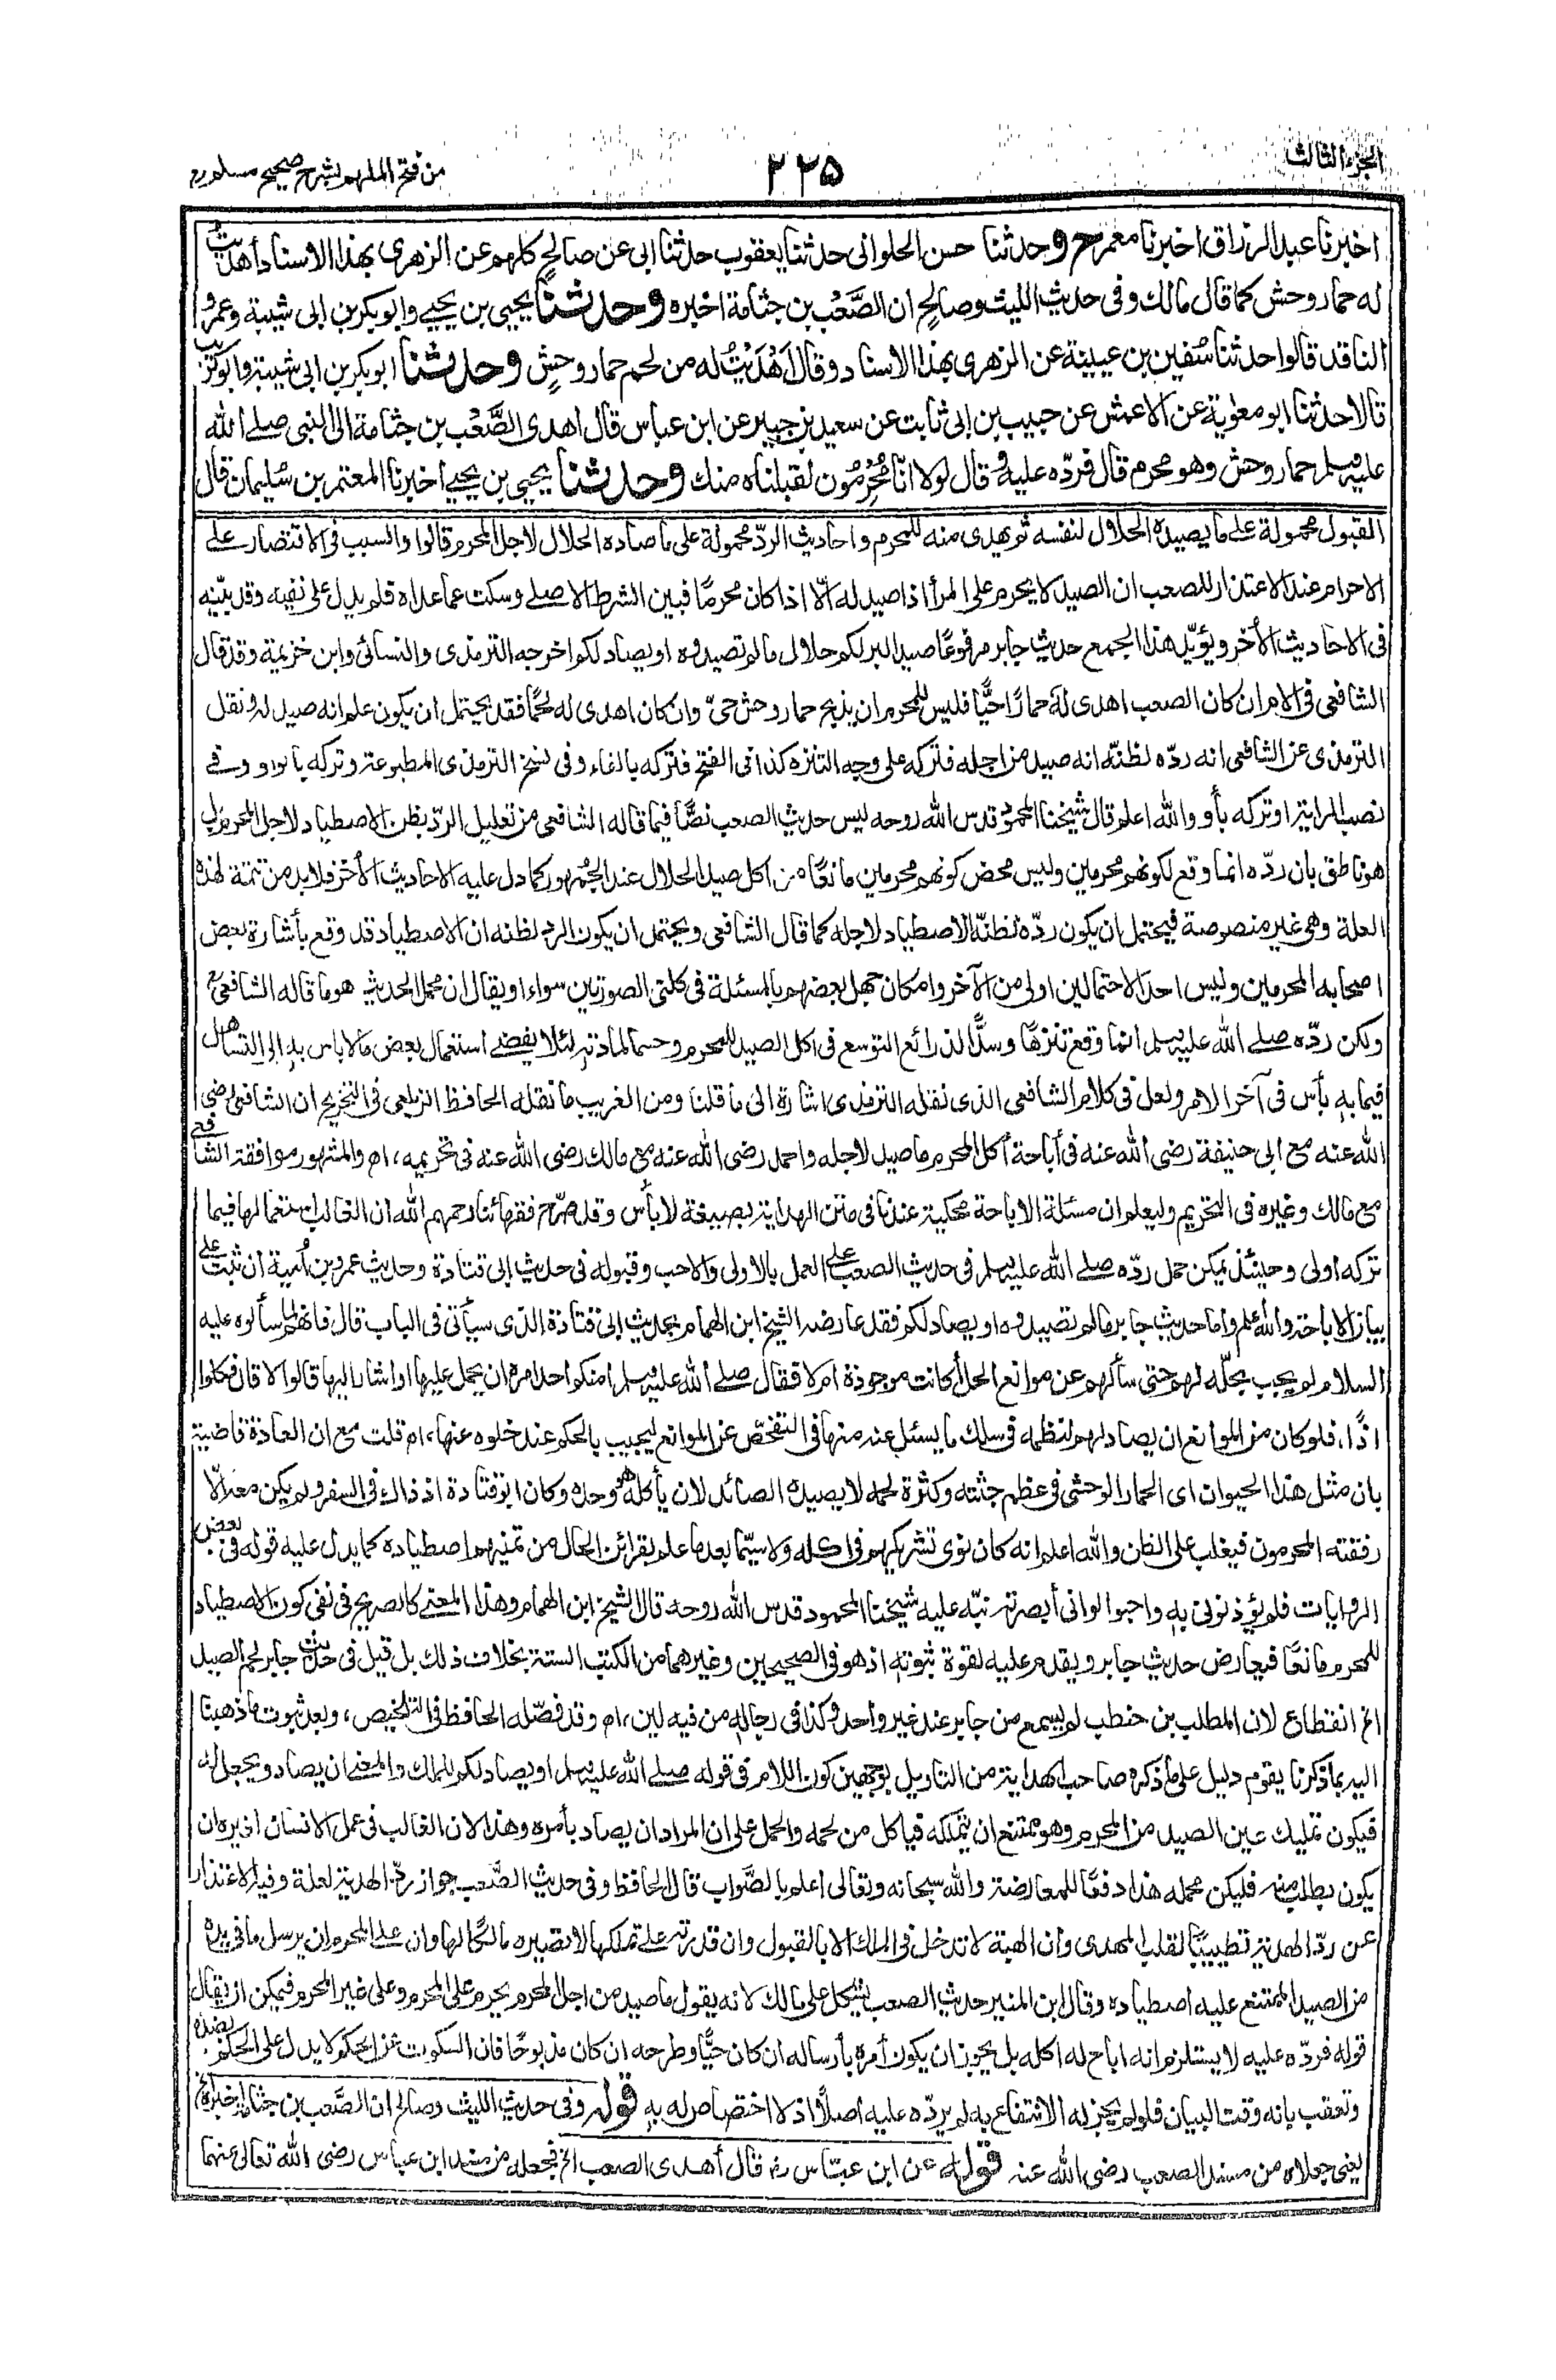 الجزء الثالث
٢٢٥
من فتح الملهم بشرح صحيح مسلم
اخبرنا عبد الرزاق اخبرنا معمر ح وحدثنا حسن الحلوانى حدثنا يعقوب حدثنا ابى عن صالح كلهم عن الزهرى بهذا الاسناد أهديتُ
له حمار وحش كما قال مالك وفى حديث الليث وصالح ان الصَّعْب بن جثامة اخبره وحدثنا يحيى بن يحيى وابو بكر بن ابى شيبة وعمرو
الناقد قالوا حدثنا سُفين بن عيينة عن الزهرى بهذا الاسناد وقال اَهْدَيْتُ له من لحم حمار وحشٍ وحدثنا ابو بكر بن ابى شيبة وابو كريب
قالا حدثنا ابو معٰوية عن الاعمش عن حبيب بن ابى ثابت عن سعيد بن جبير عن ابن عباس قال اهدى الصَّعْب بن جثامة الى النبى صلے الله
عليه وسلم حمار وحش وهو محرم قال فردّه عليه وقال لولا انّا مُحْرِمُون لقبلناه منك وحدثنا يحيى بن يحيى اخبرنا المعتمر بن سليمان قال
القبول محمولة على ما يصيده الحلال لنفسه ثم يهدى منه للمحرم واحاديث الردّ محمولة على ما صاده الحلال لاجل المحرم قالوا والسبب فى الاقتصار على
الاحرام عند الاعتذار للصعب ان الصيد لا يحرم على المرأ اذا صيد له الّا اذا كان محرمًا فبين الشرط الاصلے وسكت عما عداه فلم يدل على نفيه وقد بيّنه
فى الاحاديث الأخر ويؤيّد هذا الجمع حديث جابر مرفوعًا صيد البر لكم حلال ما لم تصيدوه او يصاد لكم اخرجه الترمذى والنسائى وابن خزيمة وقد قال
الشافعى فى الام ان كان الصعب اهدى له حمارًا حيًّا فليس للمحرم ان يذبح حمار وحش حىّ وان كان اهدى له لحمًا فقد يحتمل ان يكون علم انه صيد له ونقل
الترمذى عن الشافعى انه ردّه لظنّه انه صيد من اجله فتركه على وجه التنزه كذا فى الفتح فتركه بالفاء وفى نسخ الترمذى المطبوعة وتركه بالواو وفى
نصب الراية او تركه بأو والله اعلم قال شيخنا المحمود قدس الله روحه ليس حديث الصعب نصًّا فيما قاله الشافعى من تعليل الردّ بظن الاصطياد لاجل المحرم بل
هو ناطق بان ردّه انما وقع لكونهم محرمين وليس محض كونهم محرمين مانعًا من اكل صيد الحلال عند الجُمهور كما دل عليه الاحاديث الأخر فلا بد من تتمة لهذه
العلة وهى غير منصوصة فيحتمل ان يكون ردّه لظنّه الاصطياد لاجله كما قال الشافعى ويحتمل ان يكون الرد لظنه ان الاصطياد قد وقع بأشارة بعض
اصحابه المحرمين وليس احد الاحتمالين اولى من الآخر وامكان جهل بعضهم بالمسئلة فى كلتى الصورتين سواء او يقال ان محمل الحديث هو ما قاله الشافعىؒ
ولكن ردّه صلے الله عليه وسلم انما وقع تنزهًا وسدًّا لذرائع التوسع فى اكل الصيد للمحرم وحسما لمادته لئلا يفضے استعمال بعض ما لا باس به الى التساهل
فيما به بأس فى آخر الامر ولعل فى كلام الشافعى الذى نقله الترمذى اشارة الى ما قلنا ومن الغريب ما نقله الحافظ الزيلعى فى التخريج ان الشافعى رضى
الله عنه مع ابى حنيفة رضى الله عنه فى أباحة أكل المحرم ما صيد لاجله واحمد رضى الله عنه مع مالك رضى الله عنه فى تحريمه، اه والمشهور موافقة الشافعى
مع مالك وغيره فى التحريم وليعلم ان مسئلة الاباحة محكية عندنا فى متن الهداية بصيغة لا بأس وقد صرّح فقهائنا رحمهم الله ان الغالب استعمالها فيما
تركه اولى وحينئذ يمكن حمل ردّه صلے الله عليه وسلم فى حديث الصعب على العمل بالاولى والاحب وقبوله فى حديث ابى قتادة وحديث عمرو بن أمية ان ثبت على
بيان الاباحة والله اعلم واما حديث جابر ما لم تصيدوه او يصاد لكم فقد عارضه الشيخ ابن الهمام بحديث ابى قتادة الذى سيأتى فى الباب قال فانهم لما سألوه عليه
السلام لم يجب بحلّه لهم حتى سألهم عن موانع الحل أكانت موجودة ام لا فقال صلے الله عليه وسلم أمنكم احد امره ان يحمل عليها او اشار اليها قالوا لا قال فكلوا
اذًا، فلو كان من الموانع ان يصاد لهم لنظمه فى سلك ما يسئل عنه منها فى التفحّص عن الموانع ليجيب بالحكم عند خلوه عنها، اه قلت مع ان العادة قاضية
بان مثل هذا الحيوان اى الحمار الوحشى فى عظم جثته وكثرة لحمه لا يصيده الصائد لان يأكله هو وحده وكان ابو قتادة اذ ذاك فى السفر ولم يكن معه الّا
رفقته المحرمون فيغلب على الظن والله اعلم انه كان نوى تشريكهم فى اكله ولا سيّما بعد ما علم بقرائن الحال من تمنيهم اصطياده كما يدل عليه قوله فى بعض
الروايات فلم يؤذنونى به واحبوا لو انى أبصرته نبّه عليه شيخنا المحمود قدس الله روحه قال الشيخ ابن الهمام وهذا المعنے كالصريح فى نفى كون الاصطياد
للمحرم مانعًا فيعارض حديث جابر ويقدم عليه لقوة ثبوته اذ هو فى الصحيحين وغيرهما من الكتب الستة بخلاف ذلك بل قيل فى حديث جابر لحم الصيد
الخ انقطاع لان المطلب بن حنطب لم يسمع من جابر عند غير واحد وكذا فى رجاله من فيه لين، اه وقد فصّله الحافظ فى التلخيص، وبعد ثبوت ما ذهبنا
اليه بما ذكرنا يقوم دليل على ما ذكره صاحب الهداية من التاويل بوجهين كون اللام فى قوله صلے الله عليه وسلم او يصاد لكم للملك والمعنے ان يصاد ويجعل له
فيكون تمليك عين الصيد من المحرم وهو ممتنع ان يتملكه فياكل من لحمه والحمل على ان المراد ان يصاد بأمره وهذا لان الغالب فى عمل الانسان لغيره ان
يكون بطلب منه فليكن محمله هذا دفعًا للمعارضة والله سبحانه وتعالى اعلم بالصَّواب قال الحافظ وفى حديث الصَّعب جواز ردّ الهدية لعلة وفيه الاعتذار
عن ردّ الهدية تطييبًا لقلب المهدى وان الهبة لا تدخل فى الملك الا بالقبول وان قدرته على تملكها لا تصيره مالكًا لها وان على المحرم ان يرسل ما فى يده
من الصيد الممتنع عليه اصطياده وقال ابن المنير حديث الصعب يشكل على مالك لانه يقول ما صيد من اجل المحرم يحرم على المحرم وعلى غير المحرم فيمكن ان يقال
قوله فردّه عليه لا يستلزم انه اباح له اكله بل يجوز ان يكون أمره بأرساله ان كان حيًّا وطرحه ان كان مذبوحًا فان السكوت عن الحكم لا يدل على الحكم بضده
وتعقب بانه وقت البيان فلو لم يجز له الانتفاع به لم يردّه عليه اصلًا اذ لا اختصاص له به قوله وفى حديث الليث وصالح ان الصَّعب بن جثامة اخبره الخ
يعنى جعلاه من مسند الصعب رضى الله عنه قوله عن ابن عبّاس رضـ قال أهدى الصعب الخ فجعله من مسند ابن عباس رضى الله تعالى عنهما